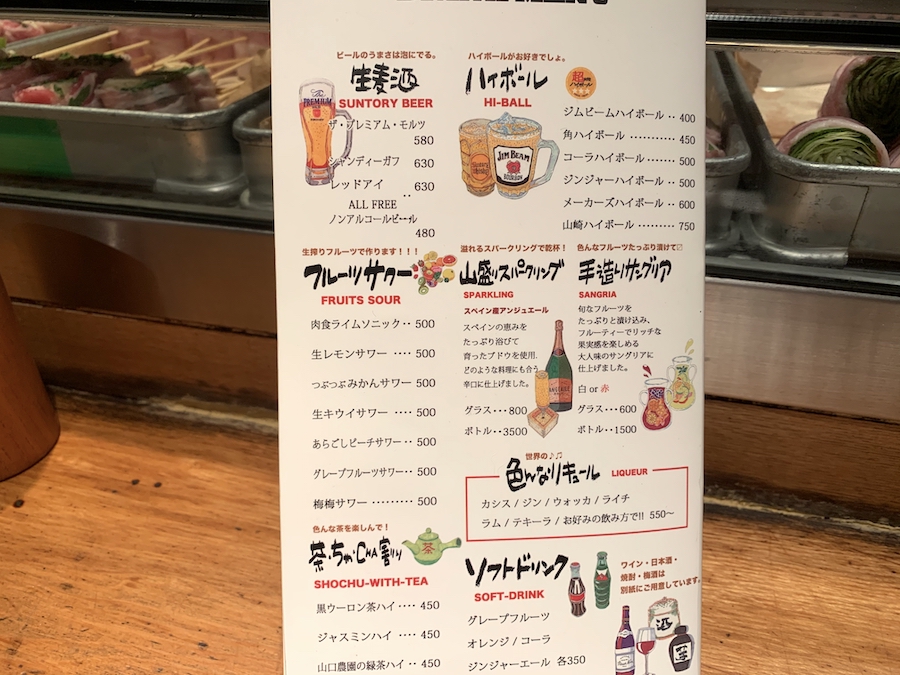 ビールのうまさは泡にでる。
生麦酒
SUNTORY BEER
ザ・プレミアム・モルツ
580
シャンディーガフ 630
レッドアイ ‥ 630
ALL FREE
ノンアルコールビール
480
ハイボールがお好きでしょ。
ハイボール
HI-BALL
超
ハイボール
JIM BEAM
BOURBON
The
PREMIUM
ジムビームハイボール ‥ 400
角ハイボール ………… 450
コーラハイボール …… 500
ジンジャーハイボール ‥ 500
メーカーズハイボール ‥ 600
山崎ハイボール ……… 750
生搾りフルーツで作ります！！！
フルーツサワー
FRUITS SOUR
肉食ライムソニック‥ 500
生レモンサワー ‥‥ 500
つぶつぶみかんサワー 500
生キウイサワー ‥‥ 500
あらごしピーチサワー‥ 500
グレープフルーツサワー‥ 500
梅梅サワー ……… 500
溢れるスパークリングで乾杯！
山盛りスパークリング
SPARKLING
スペイン産アンジュエール
スペインの恵みを
たっぷり浴びて
育ったブドウを使用、
どのような料理にも合う
辛口に仕上げました。
グラス‥‥800
ボトル‥3500
色んなフルーツたっぷり漬けて
手造りサングリア
SANGRIA
旬なフルーツを
たっぷりと漬け込み、
フルーティーでリッチな
果実感を楽しめる
大人味のサングリアに
仕上げました。
白 or 赤
グラス‥‥600
ボトル‥1500
世界の♪♫
色んなリキュール
LIQUEUR
カシス / ジン / ウォッカ / ライチ
ラム / テキーラ / お好みの飲み方で!! 550〜
色んな茶を楽しんで！
茶・ちゃ・CHA割り
茶
SHOCHU-WITH-TEA
黒ウーロン茶ハイ ‥‥ 450
ジャスミンハイ ‥‥ 450
山口農園の緑茶ハイ ‥ 450
ソフトドリンク
SOFT-DRINK
グレープフルーツ
オレンジ / コーラ
ジンジャーエール 各350
ワイン・日本酒・
焼酎・梅酒は
別紙にご用意しています。
酒